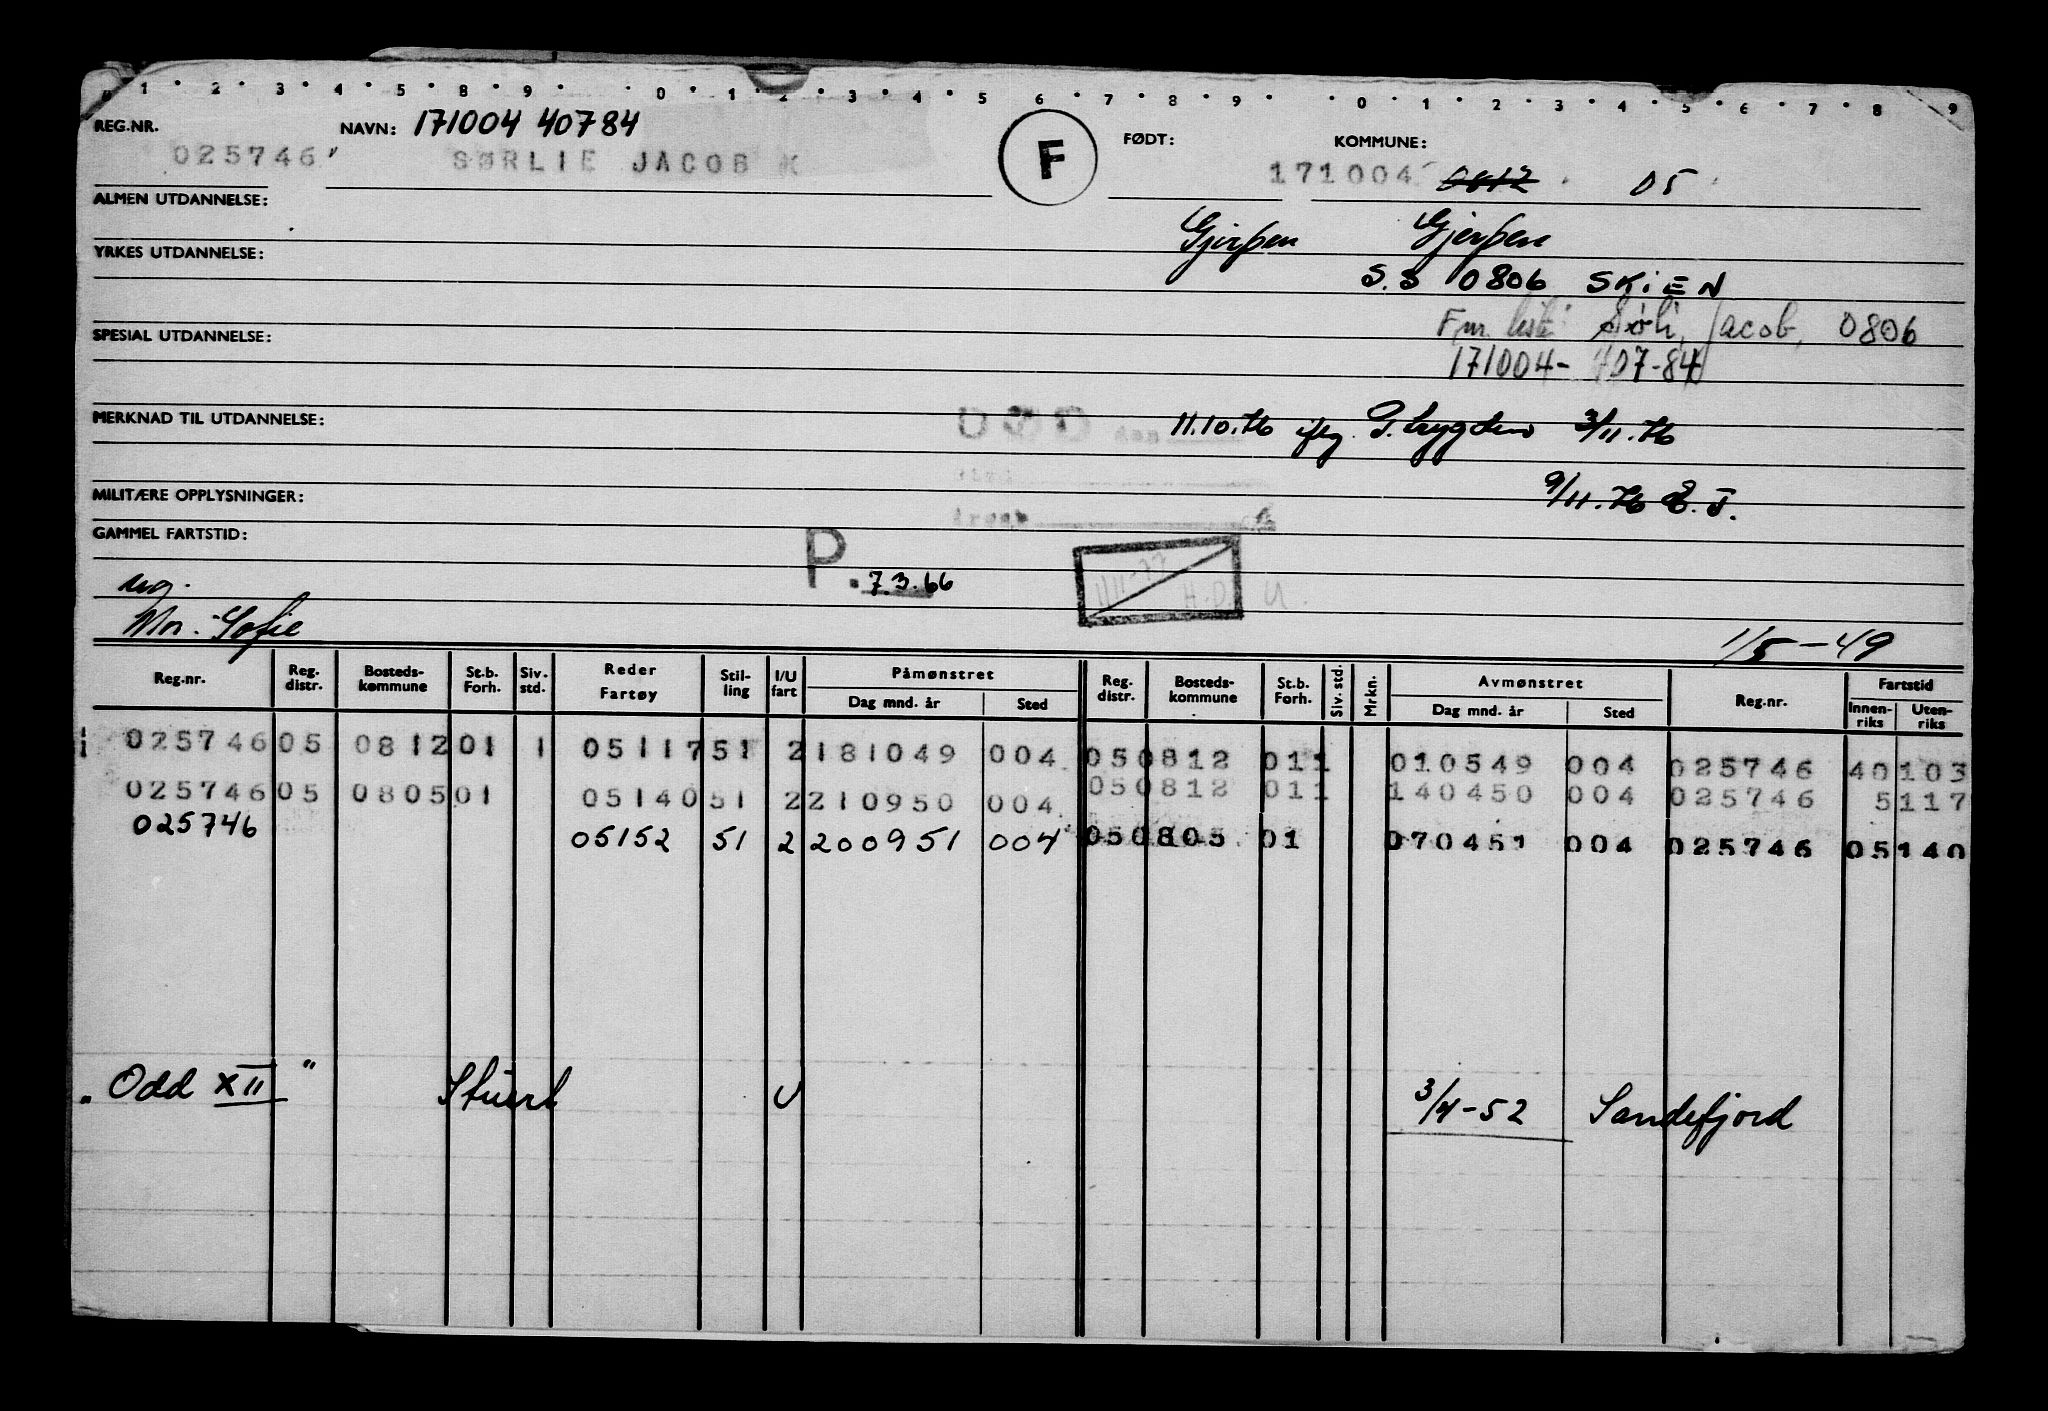 1 2 3 4 5 6 7 8 9 0 1 2 3 4 5 6 7 8 9 0 1 2 3 4 5 6 7 8 9
REG.NR. NAVN: 171004 40784 F FØDT: KOMMUNE:
025746 SØRLIE JACOB K 171004 0812 05
ALMEN UTDANNELSE:
Gjerpen Gjerpen
YRKES UTDANNELSE:
S.S 0806 SKIEN
Søli, Jacob, 0806
SPESIAL UTDANNELSE:
171004- 407-84
MERKNAD TIL UTDANNELSE: DØD 11.10.76 ifg. trygden 3/11.76
9/11.76
MILITÆRE OPPLYSNINGER:
GAMMEL FARTSTID:
P. 7.3.66
ug.
Mor. Sofie 1/5-49
Reg.nr. Reg. distr. Bosteds-kommune St.b. Forh. Siv. std. Reder Fartøy Stil-ling I/U fart Påmønstret Dag mnd. år Sted Reg. distr. Bosteds-kommune St.b. Forh. Siv. std. Mrkn. Avmønstret Dag mnd. år Sted Reg.nr. Fartstid Innen-riks Uten-riks
025746 05 0812 01 1 05117 51 2 181049 004 05 0812 01 1 010549 004 025746 40103
025746 05 0805 01 05140 51 2 210950 004 05 0812 01 1 140450 004 025746 5117
025746 05152 51 2 200951 004 05 0805 01 070451 004 025746 05140
"Odd XII" Stuert U 3/4-52 Sandefjord